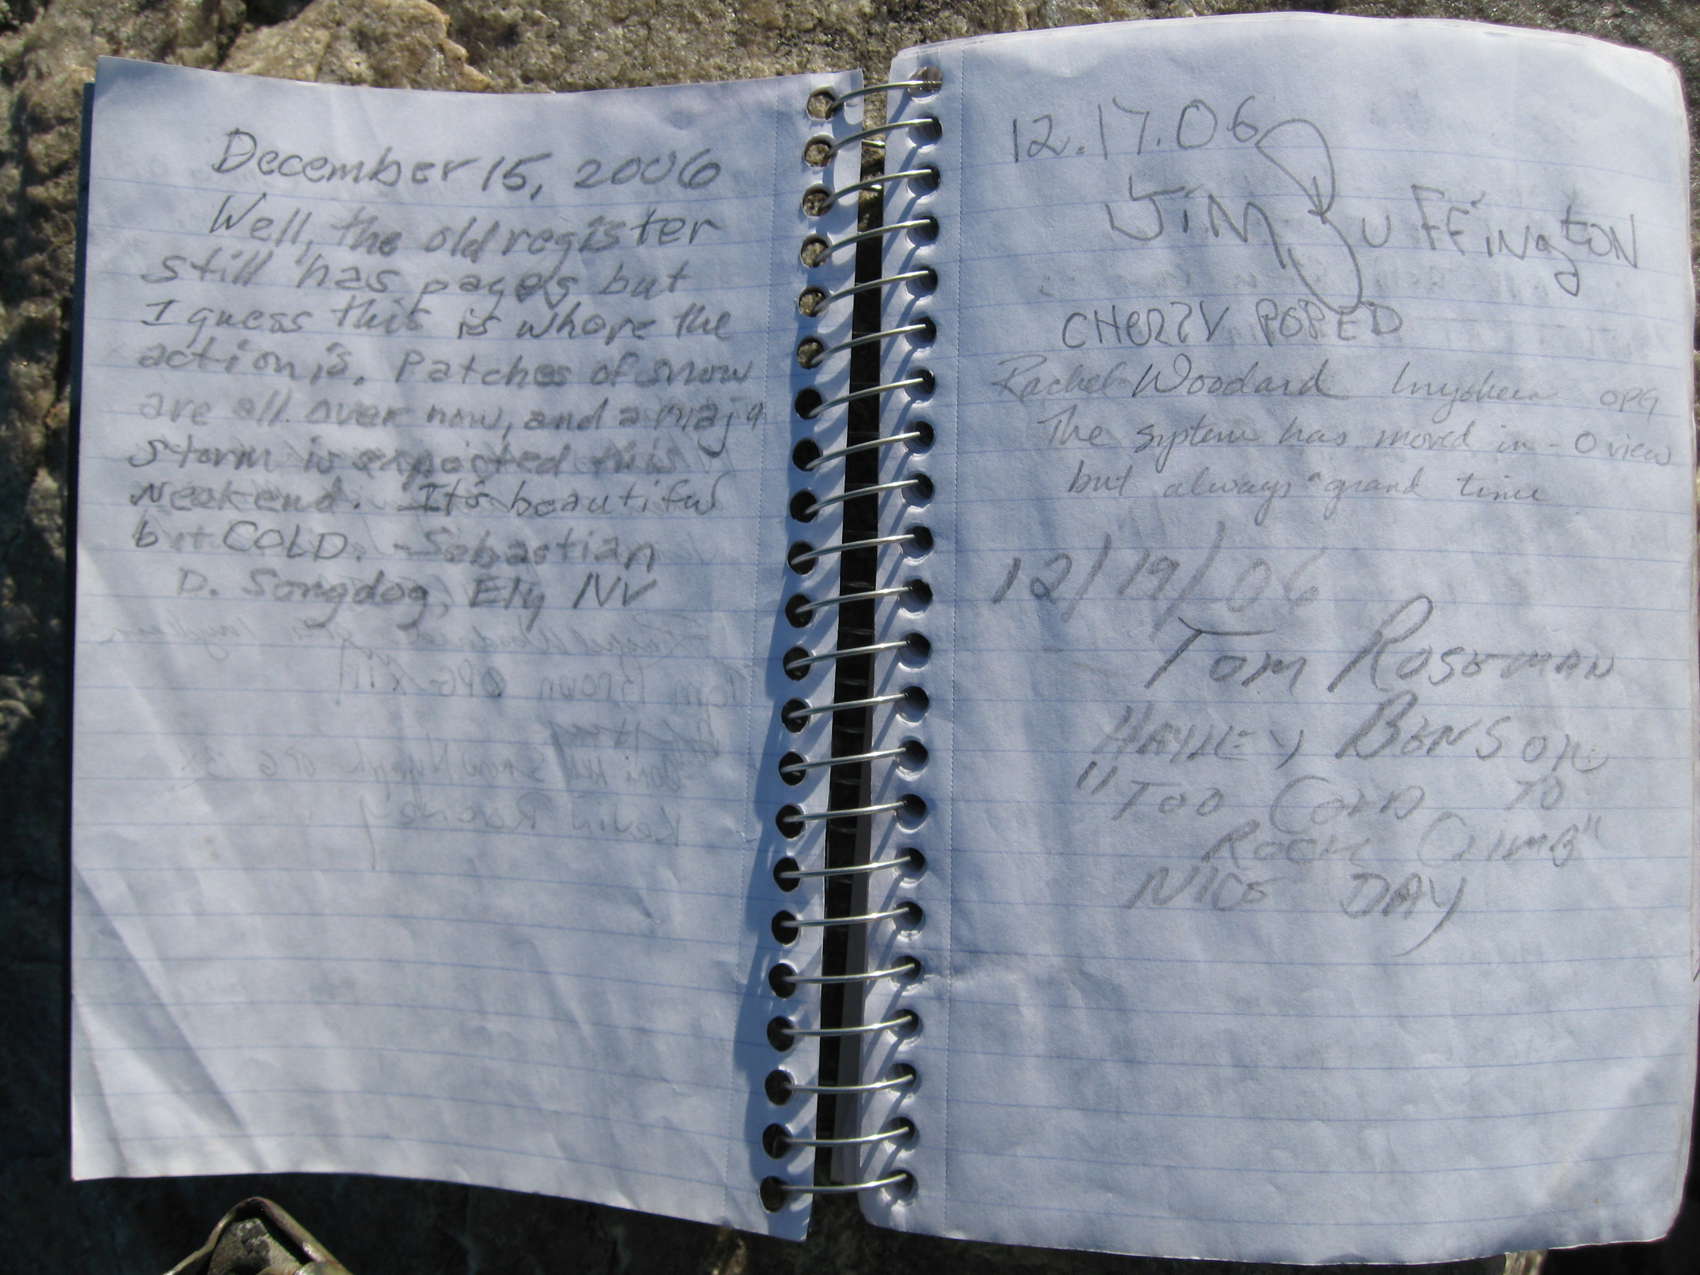 December 15, 2006
Well, the old register
still has pages but
I guess this is where the
action is. Patches of snow
are all over now, and a maj
storm is expected this
weekend. It's beautiful
but COLD. - Sebastian
D. Songdog, Ely NV
12.17.06
Jim Buffington
CHERRY POPED
Rachel Woodard Inyokern OPG
The system has moved in - O view
but always grand time
12/19/06
Tom Roseman
HAILEY BENSON
"Too COLD TO
ROCK CLIMB"
NICE DAY
Tom Brown OPG
Kevin Rooney